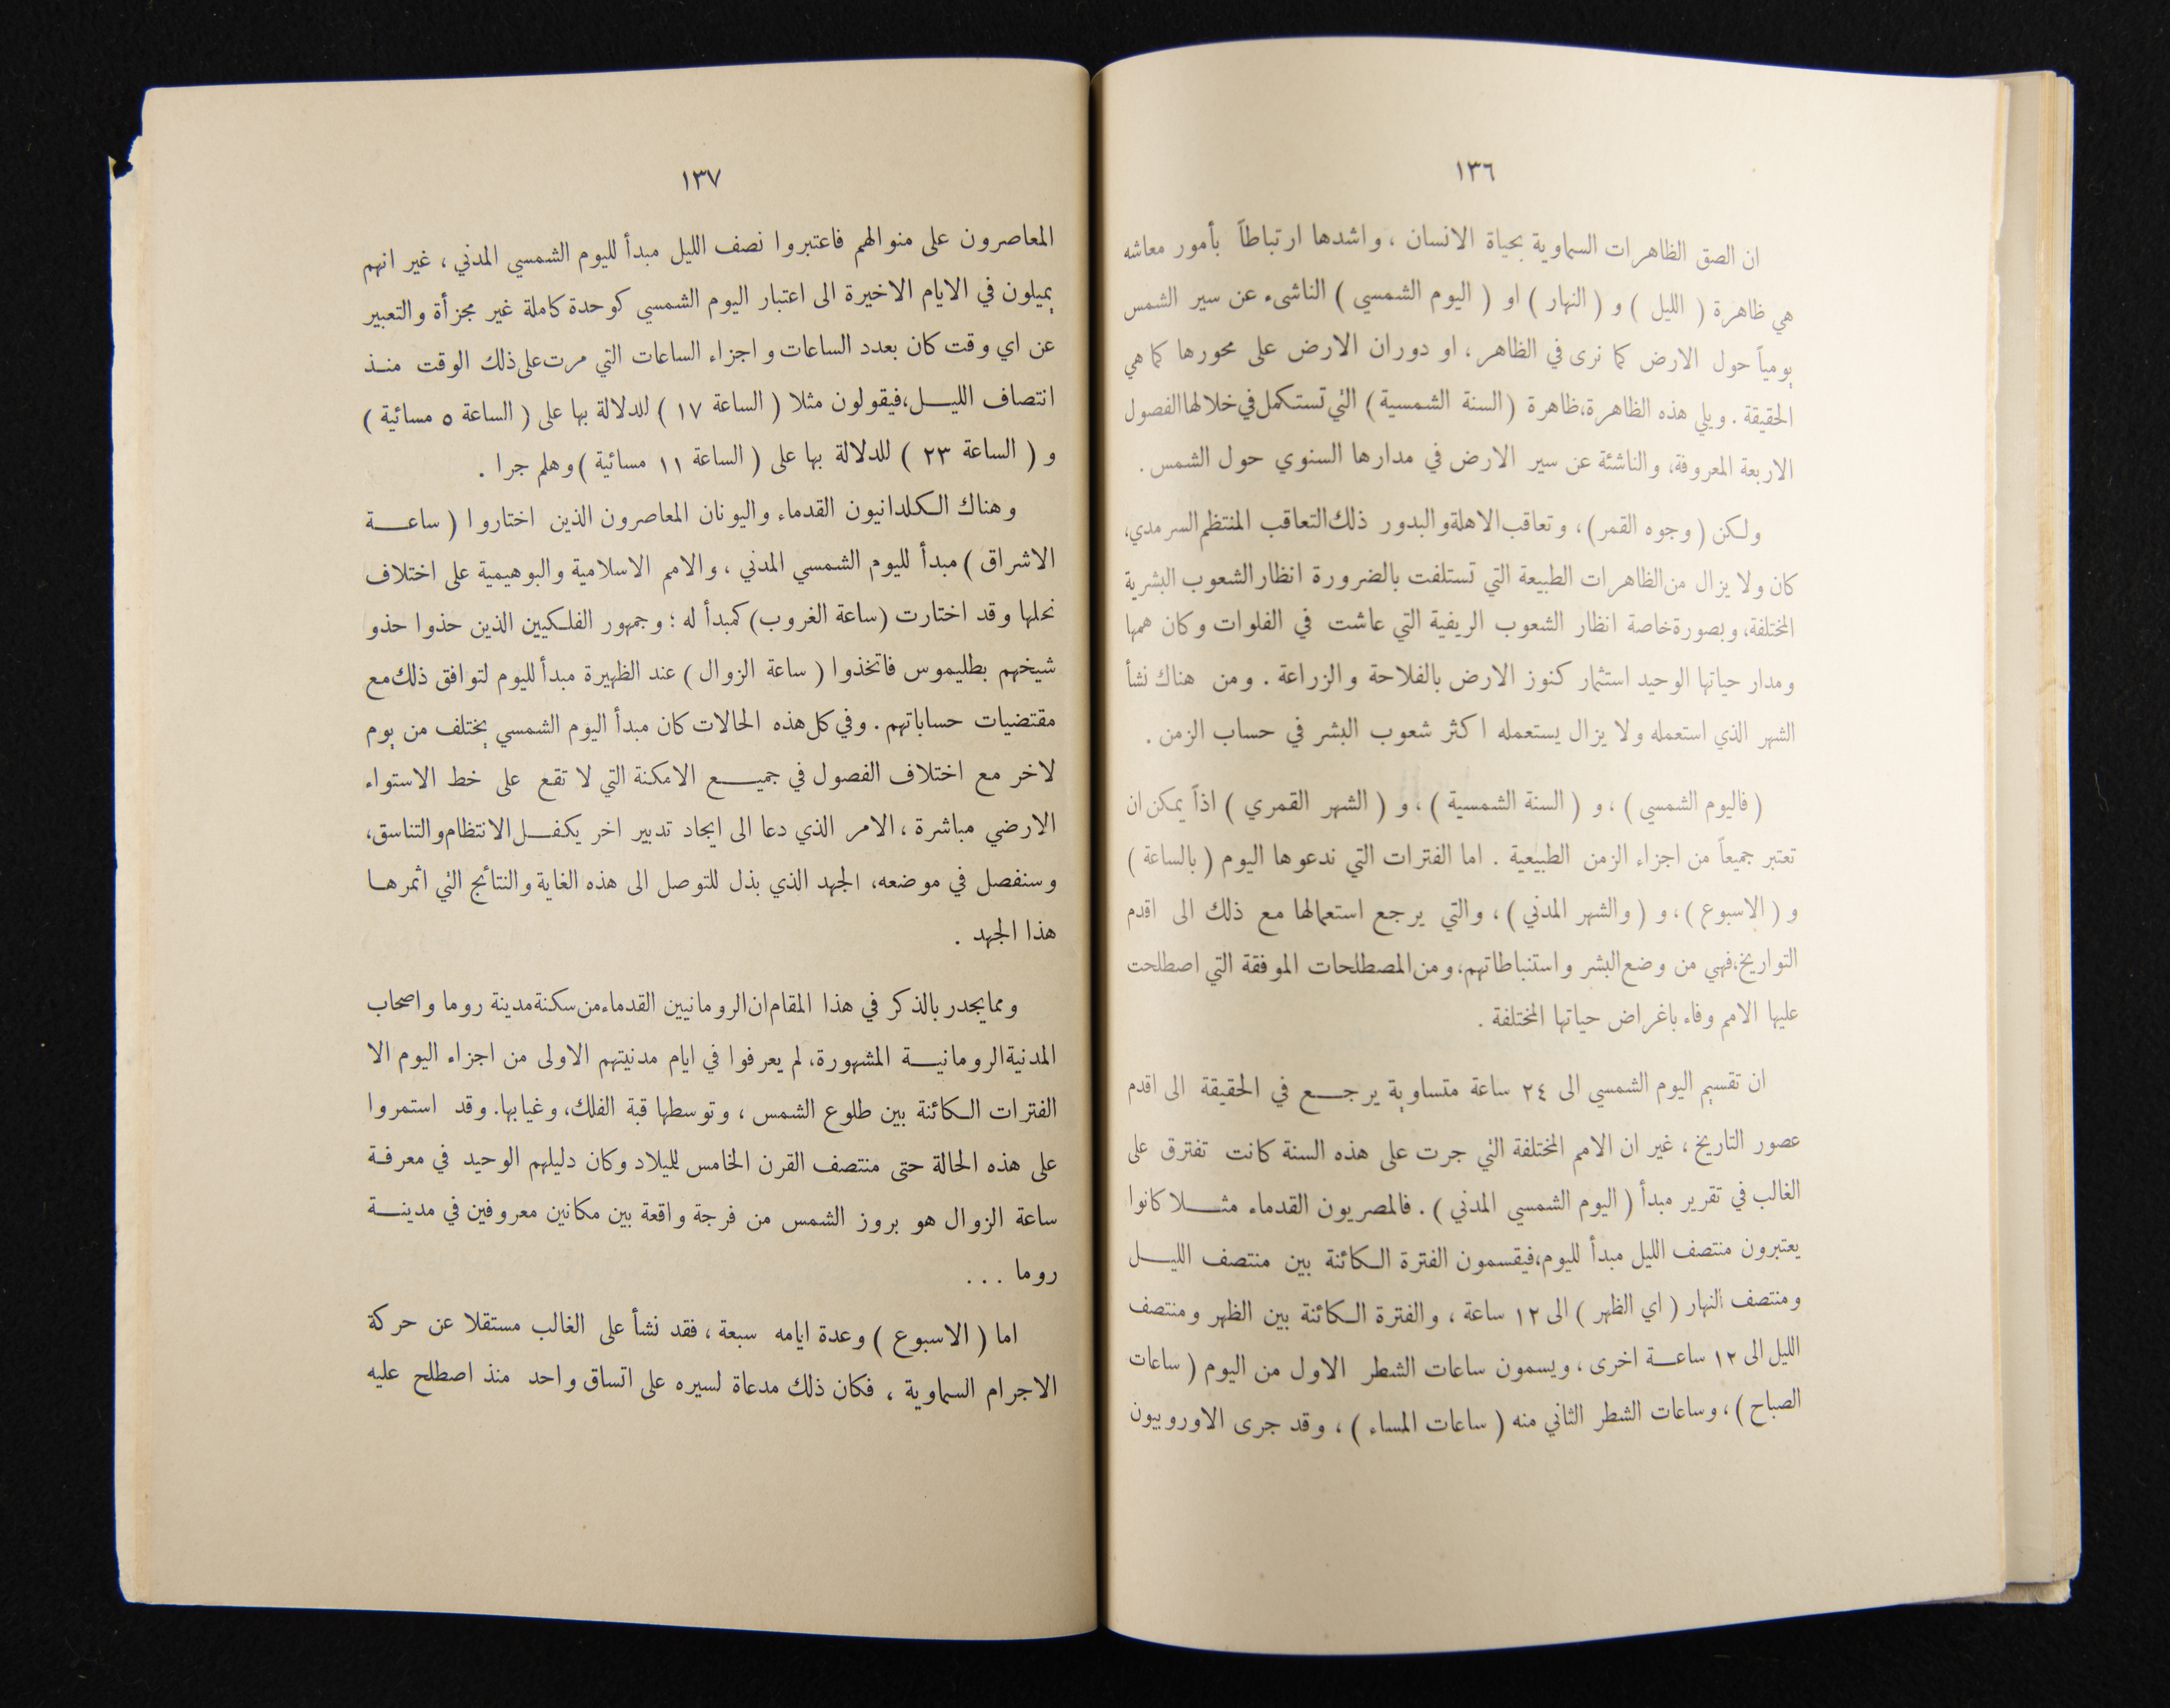 ١٣٦
ان الصق الظاهرات السماوية بحياة الانسان ، واشدها ارتباطاً بأمور معاشه
هي ظاهرة ( الليل ) و ( النهار ) او ( اليوم الشمسي ) الناشىء عن سير الشمس
يومياً حول الارض كما نرى في الظاهر ، او دوران الارض على محورها كما هي
الحقيقة . ويلي هذه الظاهرة،ظاهرة ( السنة الشمسية ) التي تستكمل في خلالها الفصول
الاربعة المعروفة، والناشئة عن سير الارض في مدارها السنوي حول الشمس .
ولكن ( وجوه القمر ) ، وتعاقب الاهلة والبدور ذلك التعاقب المنتظم السرمدي،
كان ولا يزال من الظاهرات الطبيعة التي تستلفت بالضرورة انظار الشعوب البشرية
المختلفة، وبصورة خاصة انظار الشعوب الريفية التي عاشت في الفلوات وكان همها
ومدار حياتها الوحيد استثمار كنوز الارض بالفلاحة والزراعة . ومن هناك نشأ
الشهر الذي استعمله ولا يزال يستعمله اكثر شعوب البشر في حساب الزمن .
( فاليوم الشمسي ) ، و ( السنة الشمسية ) ، و ( الشهر القمري ) اذاً يمكن ان
تعتبر جميعاً من اجزاء الزمن الطبيعية . اما الفترات التي ندعوها اليوم ( بالساعة )
و ( الاسبوع ) ، و ( والشهر المدني ) ، والتي يرجع استعمالها مع ذلك الى اقدم
التواريخ،فهي من وضع البشر واستنباطاتهم، ومن المصطلحات الموفقة التي اصطلحت
عليها الامم وفاء باغراض حياتها المختلفة .
ان تقسيم اليوم الشمسي الى ٢٤ ساعة متساوية يرجع في الحقيقة الى اقدم
عصور التاريخ ، غير ان الامم المختلفة التي جرت على هذه السنة كانت تفترق على
الغالب في تقرير مبدأ ( اليوم الشمسي المدني ) . فالمصريون القدماء مثلا كانوا
يعتبرون منتصف الليل مبدأ لليوم،فيقسمون الفترة الكائنة بين منتصف الليل
ومنتصف النهار ( اي الظهر ) الى ١٢ ساعة ، والفترة الكائنة بين الظهر ومنتصف
الليل الى ١٢ ساعة اخرى ، ويسمون ساعات الشطر الاول من اليوم ( ساعات
الصباح ) ، وساعات الشطر الثاني منه ( ساعات المساء ) ، وقد جرى الاوروبيون
١٣٧
المعاصرون على منوالهم فاعتبروا نصف الليل مبدأ لليوم الشمسي المدني ، غير انهم
يميلون في الايام الاخيرة الى اعتبار اليوم الشمسي كوحدة كاملة غير مجزأة والتعبير
عن اي وقت كان بعدد الساعات واجزاء الساعات التي مرت على ذلك الوقت منذ
انتصاف الليل،فيقولون مثلا ( الساعة ١٧ ) للدلالة بها على ( الساعة ٥ مسائية )
و ( الساعة ٢٣ ) للدلالة بها على ( الساعة ١١ مسائية ) وهلم جرا .
وهناك الكلدانيون القدماء واليونان المعاصرون الذين اختاروا ( ساعة
الاشراق ) مبدأ لليوم الشمسي المدني ، والامم الاسلامية والبوهيمية على اختلاف
نحلها وقد اختارت ( ساعة الغروب ) كمبدأ له ؛ وجمهور الفلكيين الذين حذوا حذو
شيخهم بطليموس فاتخذوا ( ساعة الزوال ) عند الظهيرة مبدأ لليوم لتوافق ذلك مع
مقتضيات حساباتهم . وفي كل هذه الحالات كان مبدأ اليوم الشمسي يختلف من يوم
لاخر مع اختلاف الفصول في جميع الامكنة التي لا تقع على خط الاستواء
الارضي مباشرة ، الامر الذي دعا الى ايجاد تدبير اخر يكفل الانتظام والتناسق،
وسنفصل في موضعه، الجهد الذي بذل للتوصل الى هذه الغاية والنتائج التي اثمرها
هذا الجهد .
ومما يجدر بالذكر في هذا المقام ان الرومانيين القدماء من سكنة مدينة روما واصحاب
المدنية الرومانية المشهورة، لم يعرفوا في ايام مدنيتهم الاولى من اجزاء اليوم الا
الفترات الكائنة بين طلوع الشمس ، وتوسطها قبة الفلك، وغيابها. وقد استمروا
على هذه الحالة حتى منتصف القرن الخامس للميلاد وكان دليلهم الوحيد في معرفة
ساعة الزوال هو بروز الشمس من فرجة واقعة بين مكانين معروفين في مدينة
روما . . .
اما ( الاسبوع ) وعدة ايامه سبعة ، فقد نشأ على الغالب مستقلا عن حركة
الاجرام السماوية ، فكان ذلك مدعاة لسيره على اتساق واحد منذ اصطلح عليه